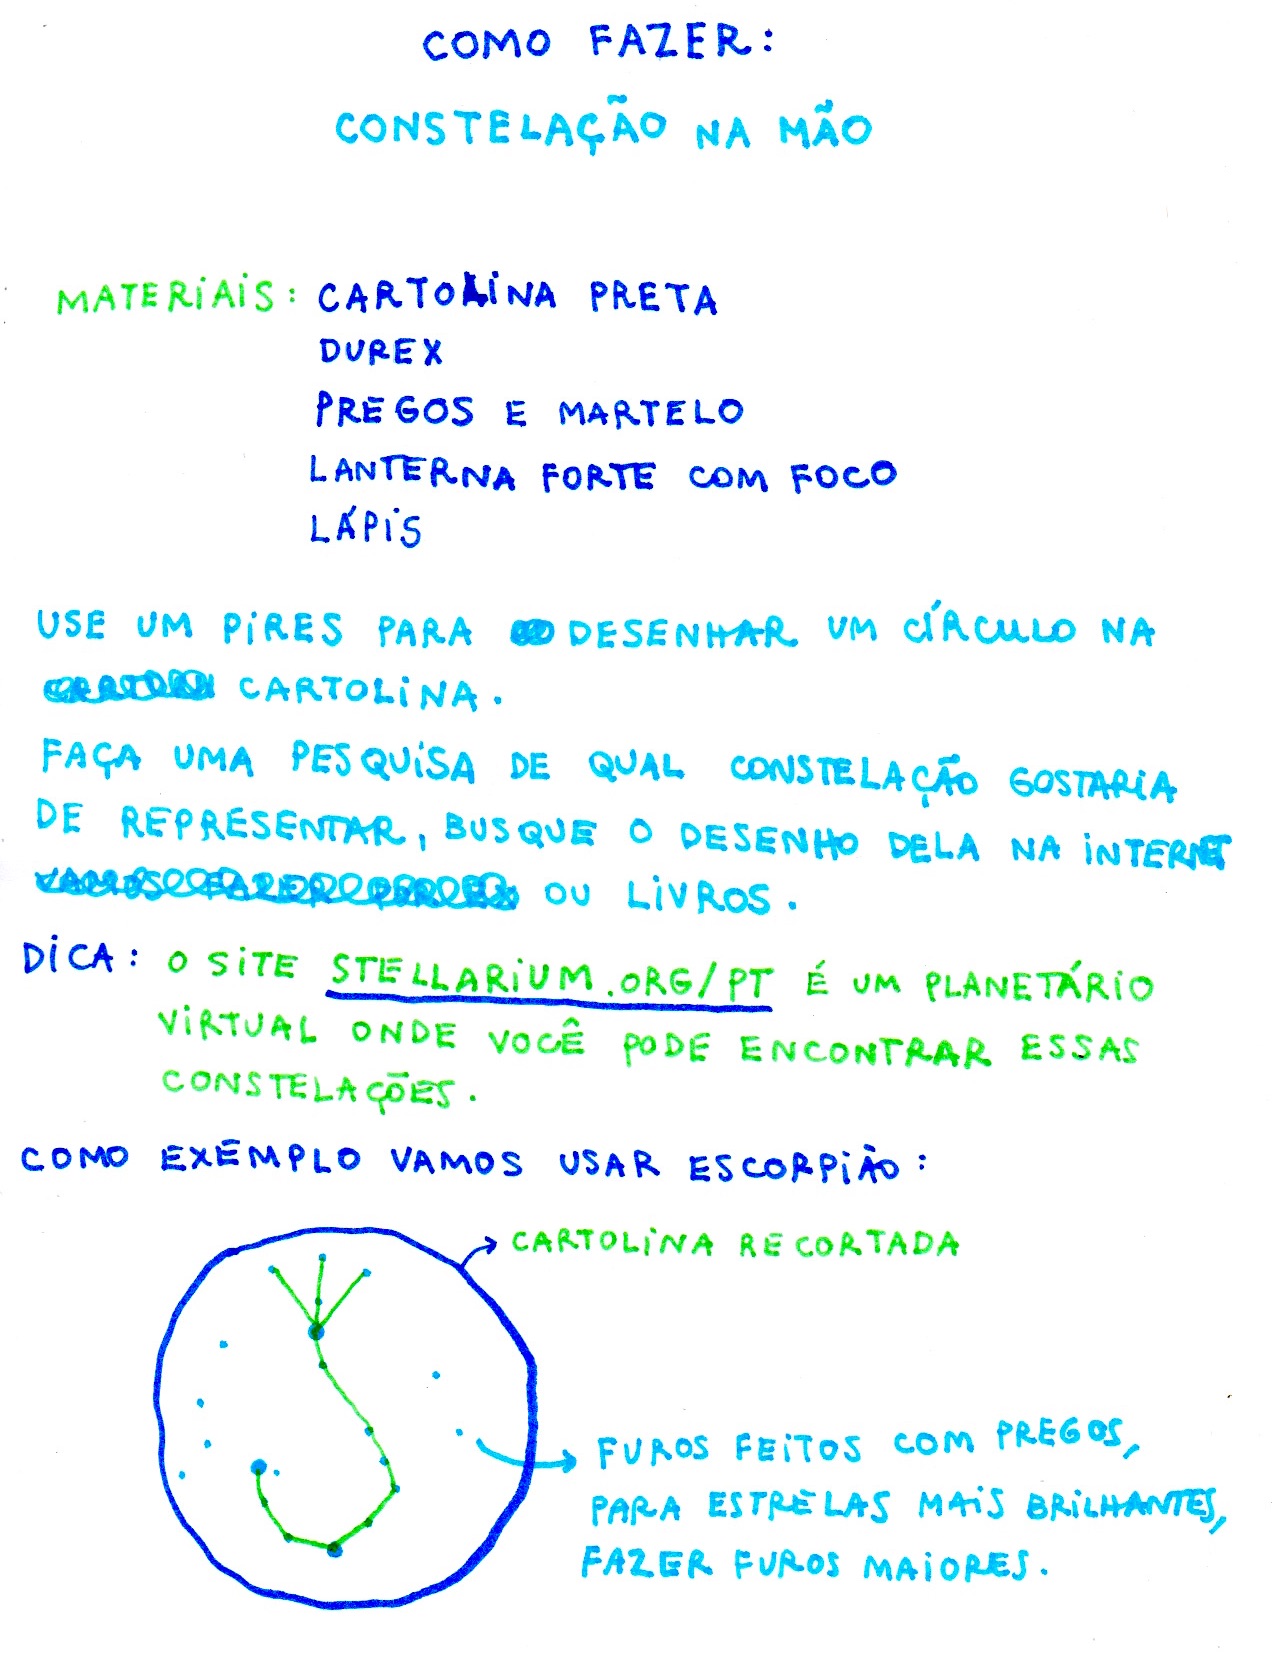 COMO FAZER:
CONSTELAÇÃO NA MÃO
MATERIAIS: CARTOLINA PRETA
DUREX
PREGOS E MARTELO
LANTERNA FORTE COM FOCO
LÁPIS
USE UM PIRES PARA DESENHAR UM CÍRCULO NA
CARTOLINA.
FAÇA UMA PESQUISA DE QUAL CONSTELAÇÃO GOSTARIA
DE REPRESENTAR, BUSQUE O DESENHO DELA NA INTERNET
OU LIVROS.
DICA: O SITE STELLARIUM.ORG/PT É UM PLANETÁRIO
VIRTUAL ONDE VOCÊ PODE ENCONTRAR ESSAS
CONSTELAÇÕES.
COMO EXEMPLO VAMOS USAR ESCORPIÃO:
CARTOLINA RECORTADA
FUROS FEITOS COM PREGOS,
PARA ESTRELAS MAIS BRILHANTES,
FAZER FUROS MAIORES.